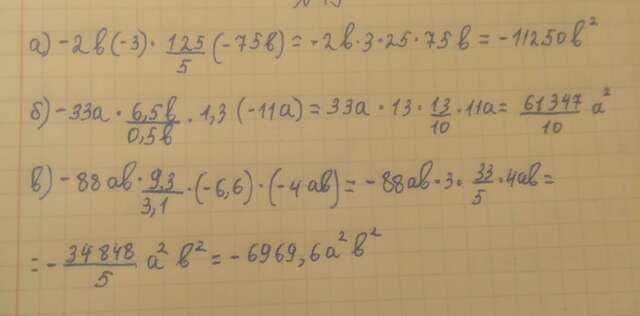 а) -2в(-3)·125/5(-75в) = -2в·3·25·75в = -11250в²
б) -33а·6,5в/0,5в·1,3(-11а) = 33а·13·13/10·11а = 61347/10 а²
в) -88ав·9.3/3,1·(-6,6)·(-4ав) = -88ав·3·33/5·4ав =
= -34848/5 а²в² = -6969,6а²в²